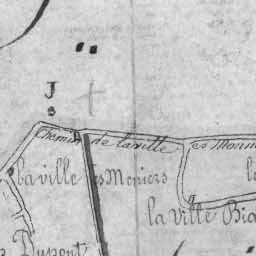 J
s
Chemin de la ville es Monn
la ville es Meniers
la Ville Bia
Dupont